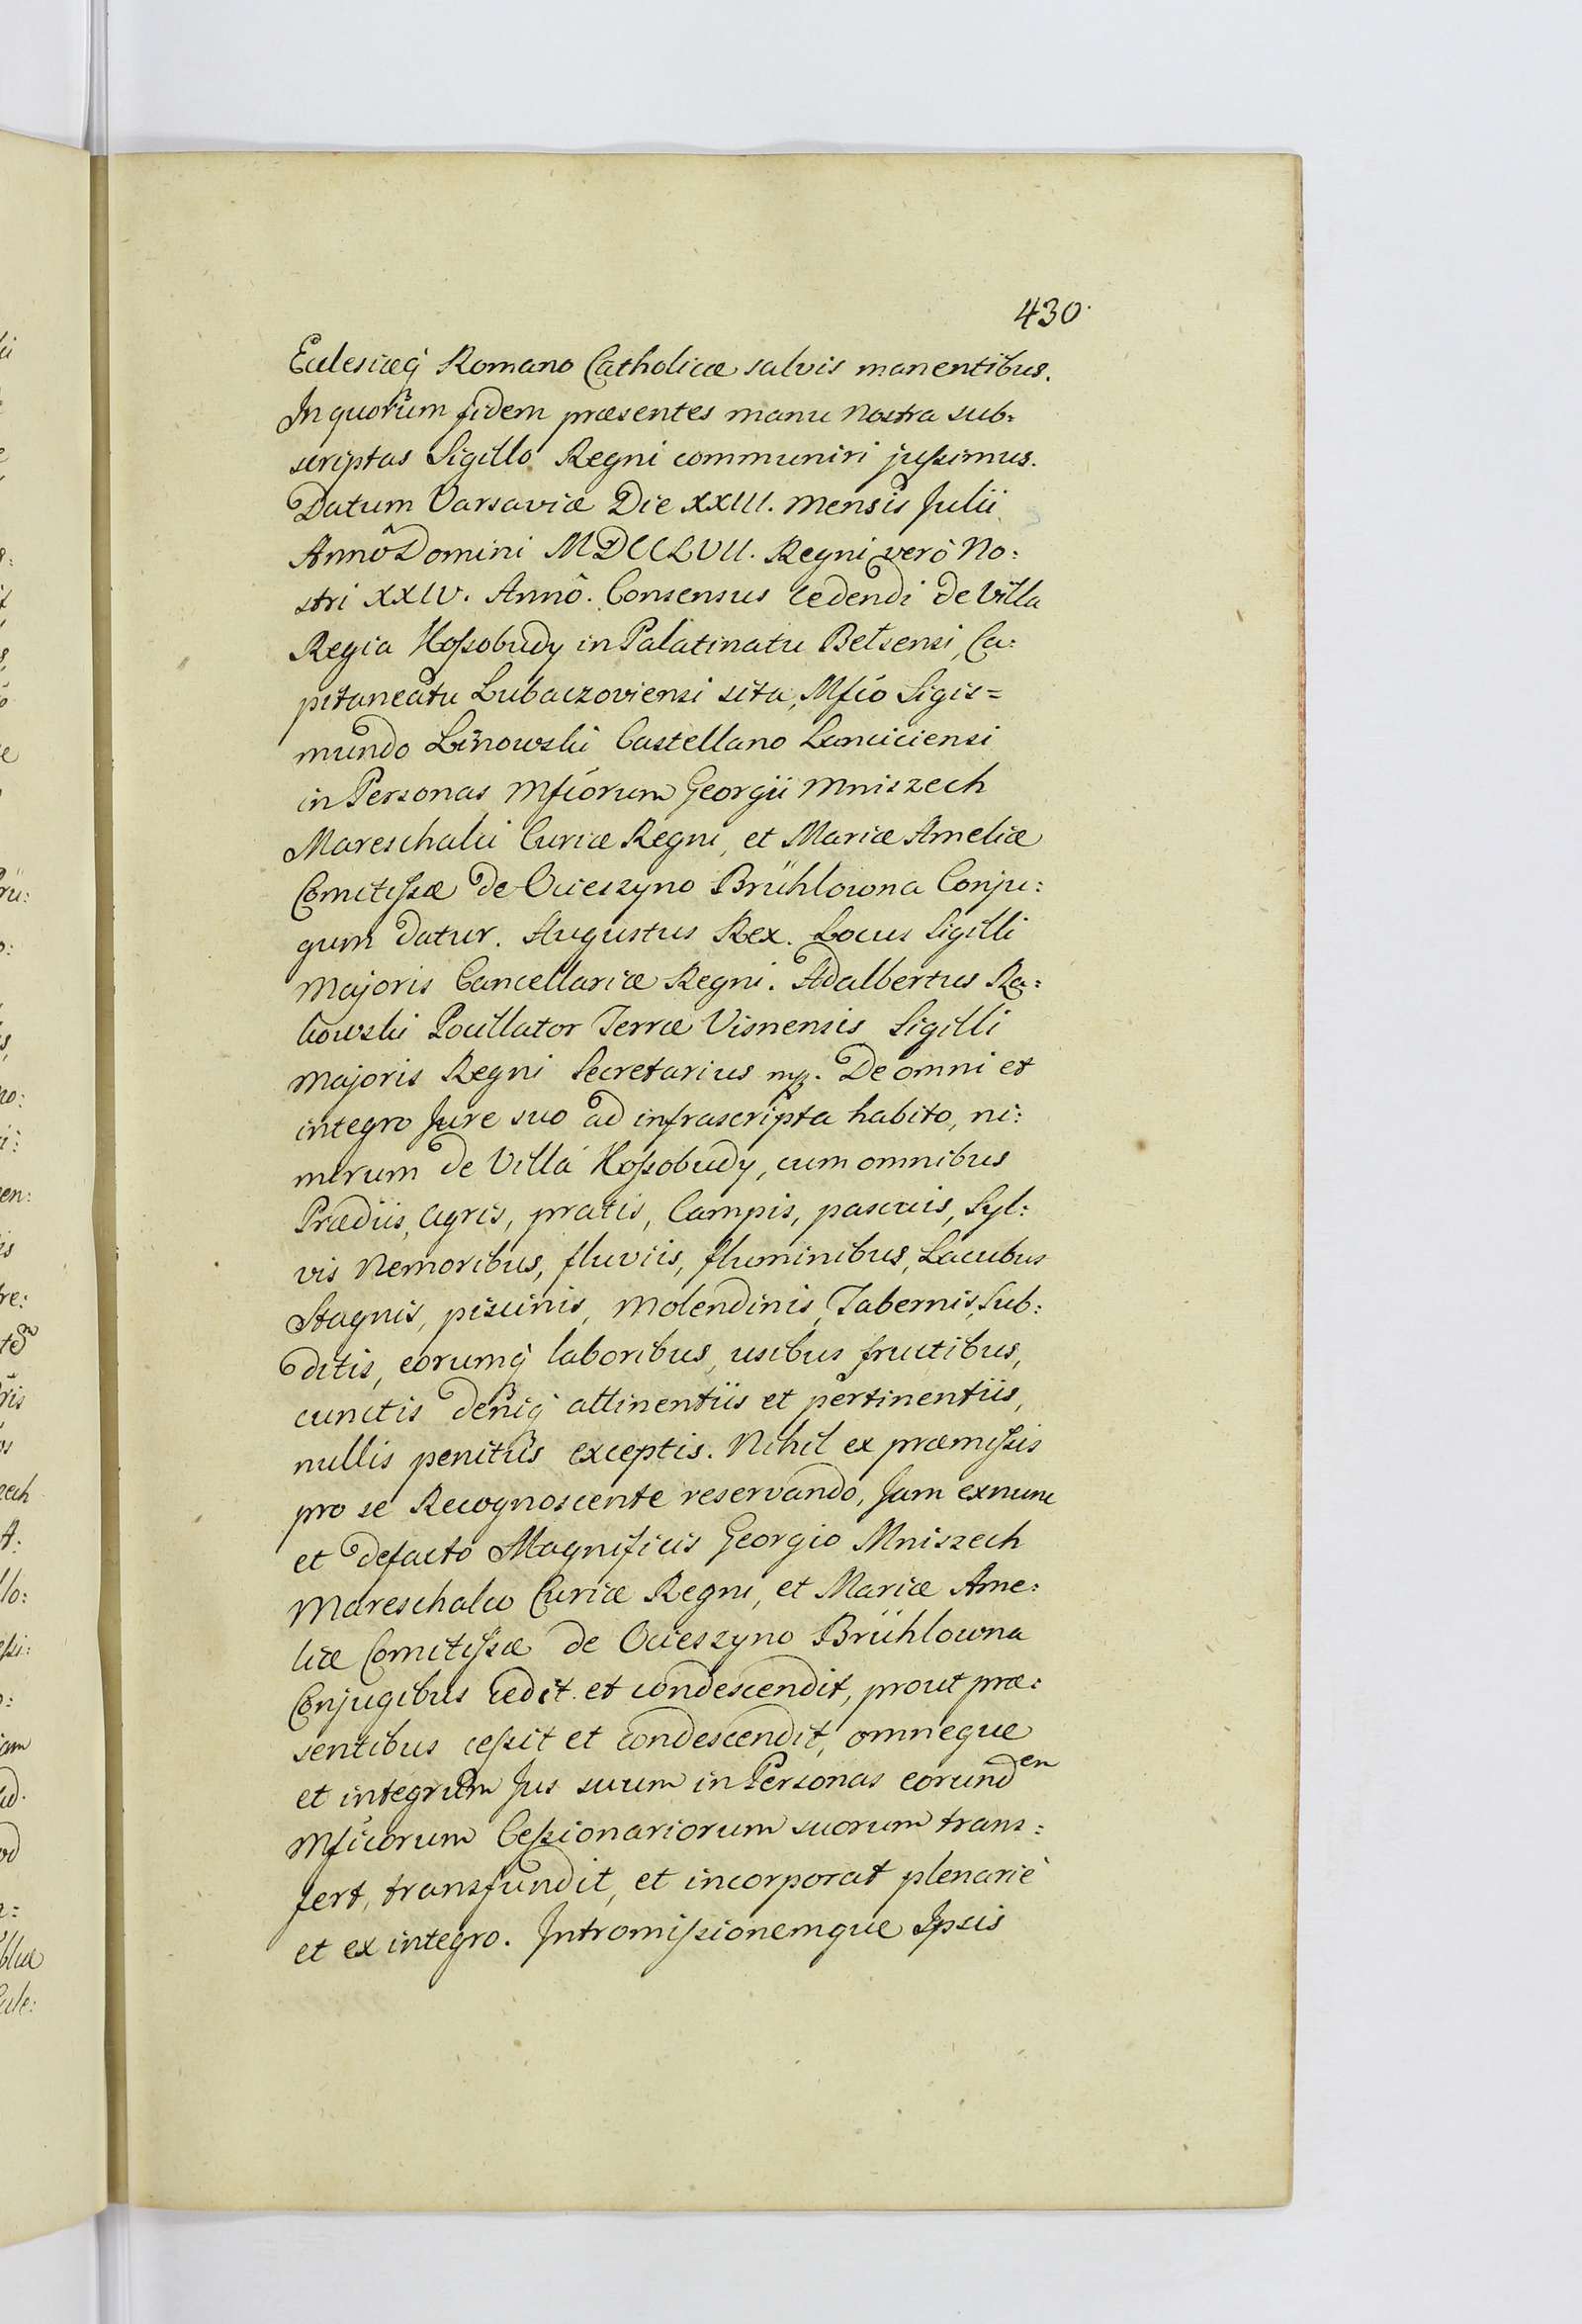 430.
Ecclesiæq Romano Catholicæ salvis manentibus.
In quorum fidem præsentes manu Nostra sub:
scriptas Sigillo Regni communiri jussimus.
Datum Varsaviæ Die XXIII. Mensis Julii
Annô Domini MDCCLVII. Regni verò No:
stri XXIV. Annô. Consensus cedendi de Villa
Regia Kossobudy in Palatinatu Belsensi, Ca:
pitaneatu Lubaczoviensi sita, Mfico Sigis=
mundo Linowski Castellano Lanciciensi
in Personas Mficorum Georgii Mniszech
Mareschalci Curiæ Regni, et Mariæ Ameliæ
Comitissæ de Ocieszyno Brühlowna Conju:
gum datur. Augustus Rex. Locus Sigilli
Majoris Cancellariæ Regni. Adalbertus Ra:
kowski Pocillator Terræ Visnensis Sigilli
Majoris Regni Secretarius mp. De omni et
integro Jure suo ad infrascripta habito, ni:
mirum de Villa Kossobudy, cum omnibus
Prædiis, agris, pratis, Campis, pascuis, Syl:
vis Nemoribus, fluviis, fluminibus, Lacubus
Stagnis, piscinis, Molendinis, Tabernis, Sub:
ditis, eorumq laboribus, usibus fructibus,
cunctis deniq attinentiis et pertinentiis,
nullis penitus exceptis. Nihil ex præmissis
pro se Recognoscente reservando, Jam exnunc
et defacto Magnificis Georgio Mniszech
Mareschalco Curiæ Regni, et Mariæ Ame:
liæ Comitissæ de Ocieszyno Brühlowna
Conjugibus cedit et condescendit, prout præ:
sentibus cessit et condescendit, omneque
et integrum Jus suum in Personas eorundem
Mficorum Cessionariorum suorum trans:
fert, transfundit, et incorporat plenariè
et ex integro. Intromissionemque Ipsis